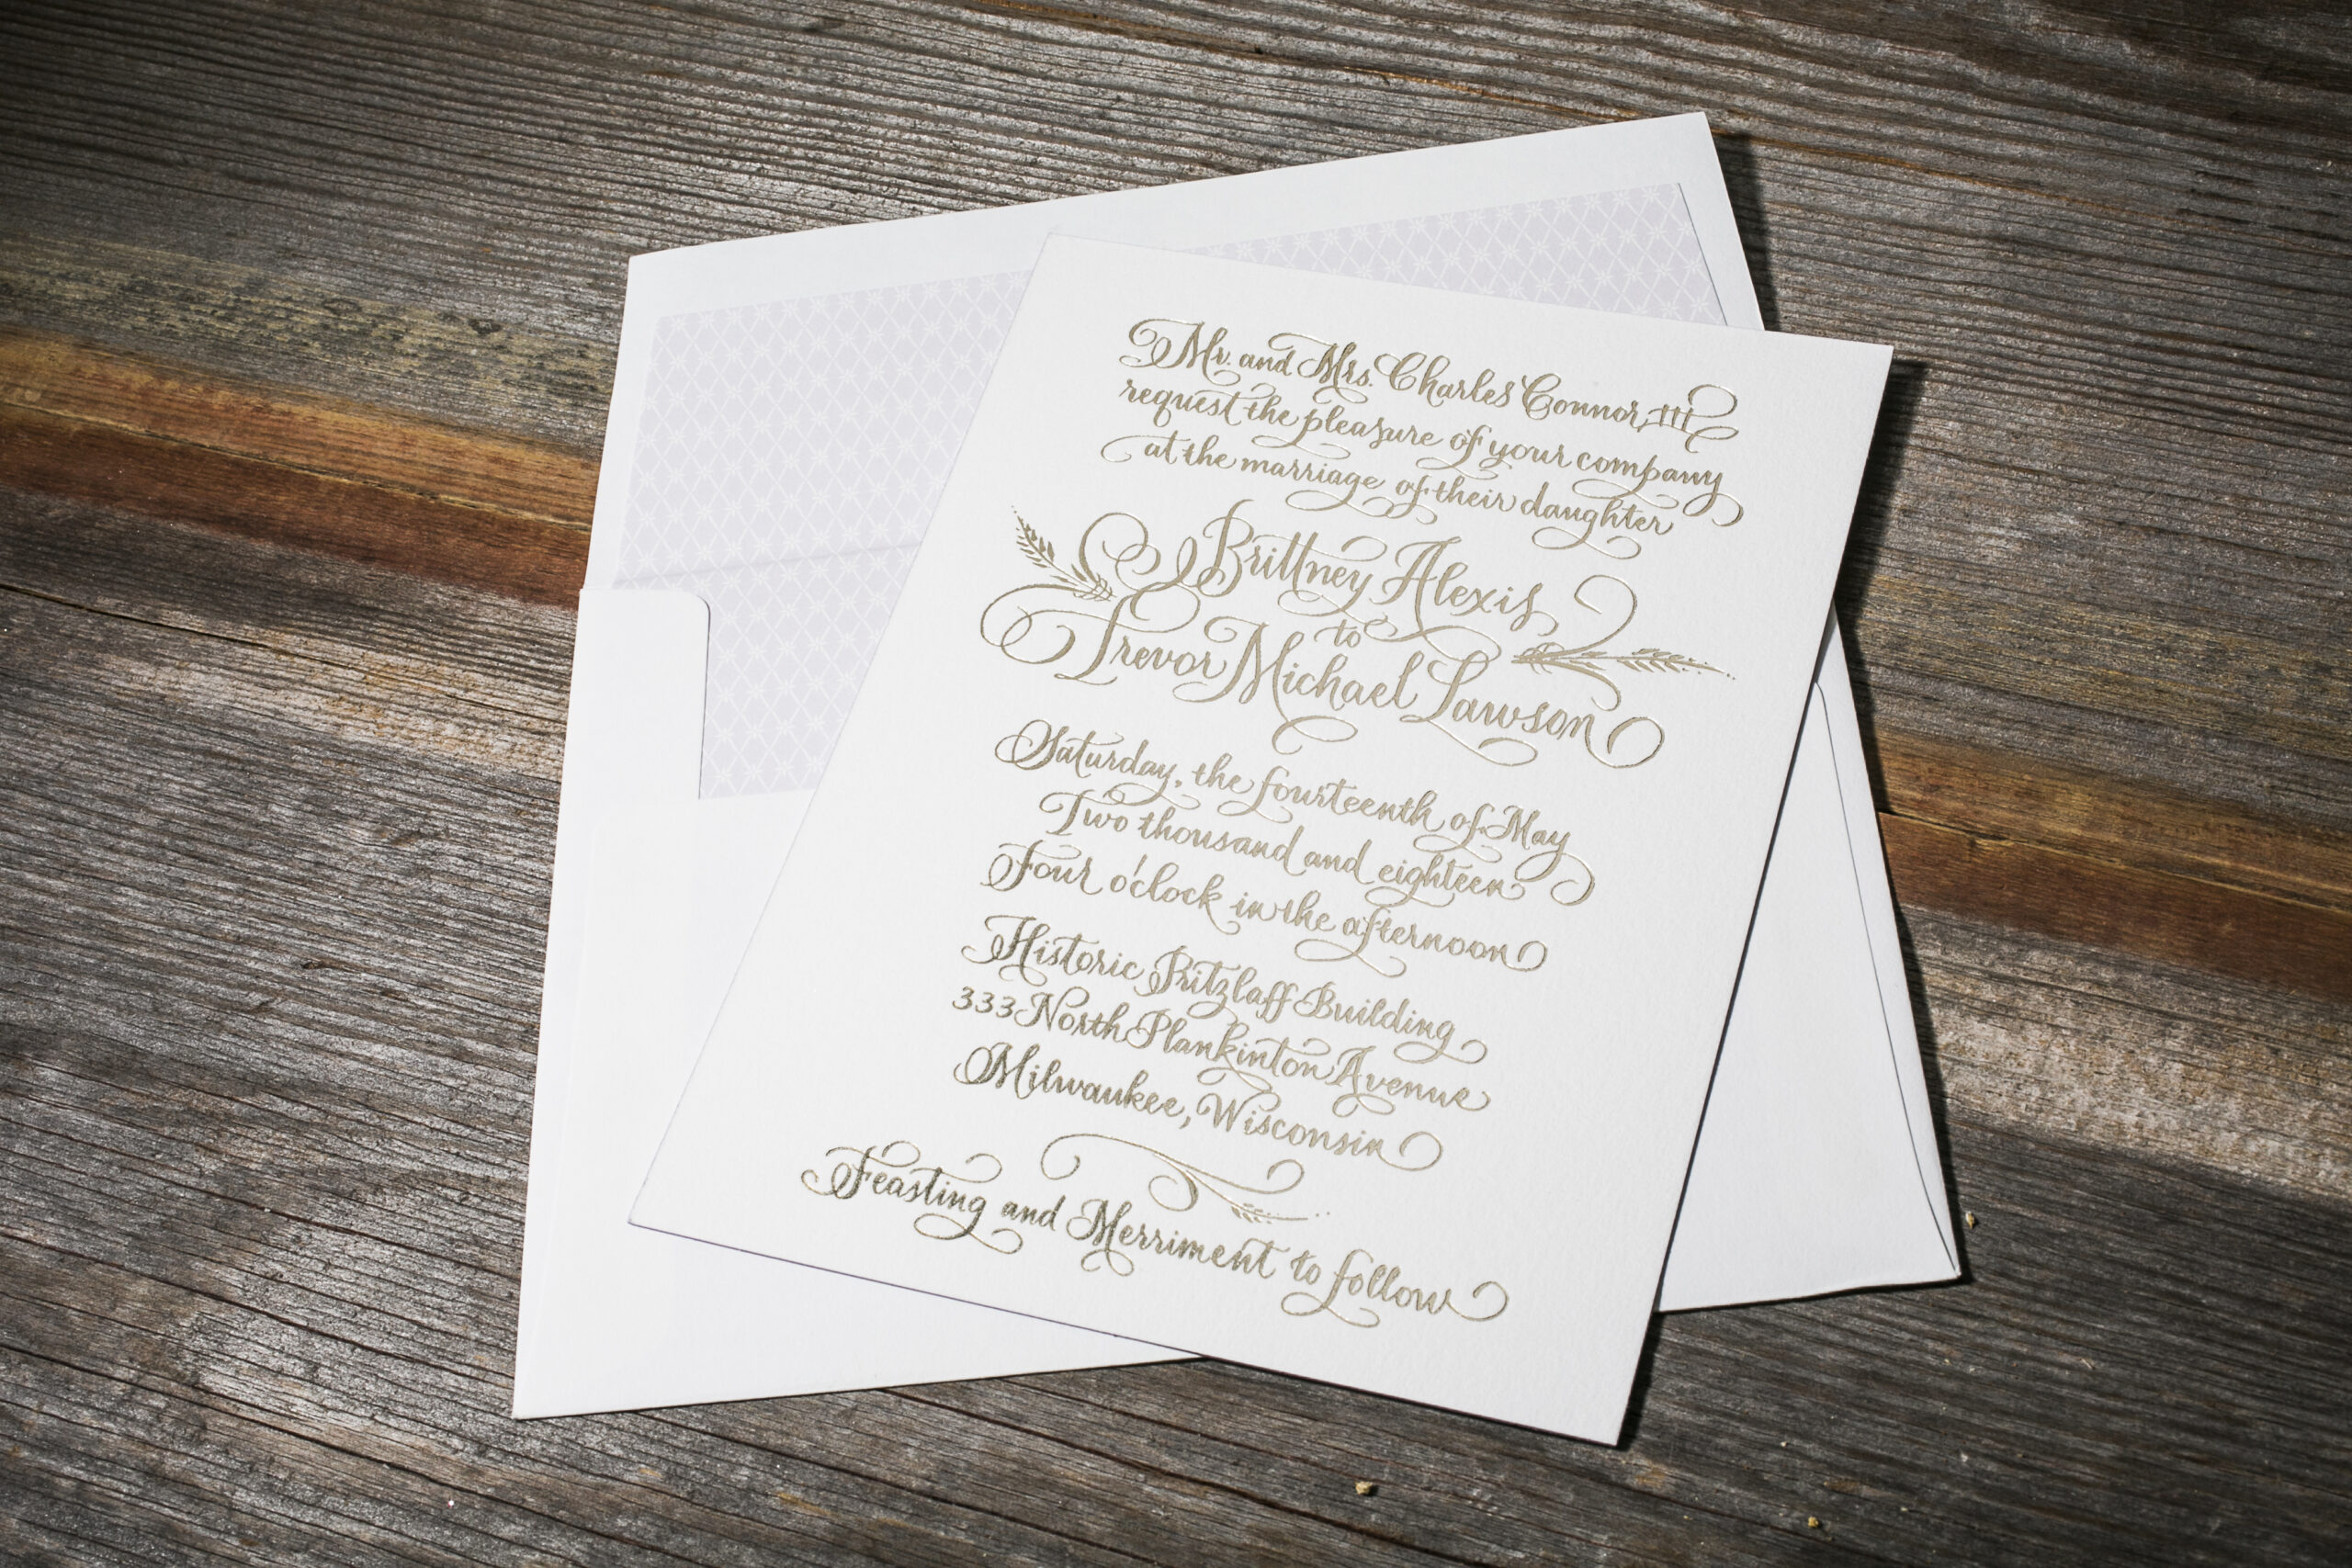 Mr. and Mrs. Charles Connor, III
request the pleasure of your company
at the marriage of their daughter
Brittney Alexis
to
Trevor Michael Lawson
Saturday, the fourteenth of May
Two thousand and eighteen
Four o'clock in the afternoon
Historic Pritzlaff Building
333 North Plankinton Avenue
Milwaukee, Wisconsin
Feasting and Merriment to follow